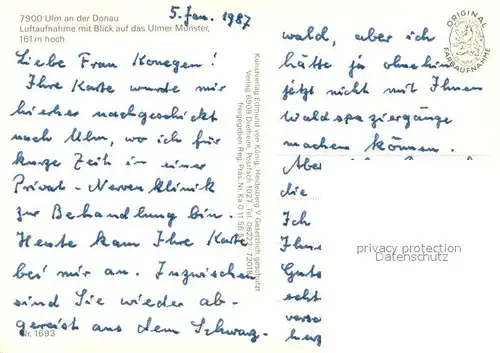 5. Jan. 1987
7900 Ulm an der Donau
Luftaufnahme mit Blick auf das Ulmer Münster,
161 m hoch
Liebe Frau Konegen!
Ihre Karte wurde mir
hierher nachgeschickt
nach Ulm, wo ich für
kurze Zeit in einer
Privat-Nervenklinik
zur Behandlung bin.
Heute kam Ihre Karte
bei mir an. Inzwischen
sind Sie wieder ab-
gereist aus dem Schwarz-
Nr. 1693
Kunstverlag Edmund von König, Heidelberg Gesetzlich geschützt
Verlag 6909 Dielheim, Postfach 1027, Tel. 06222/72018
freigegeben Reg. Präs. Nr. Ka 0
ORIGINAL
FARBAUFNAHME
wald, aber ich
hätte ja ohnehin
jetzt nicht mit Ihnen
Waldspaziergänge
machen können.
Aber
die
Ich
Ihne
Gute
seht
verse
herz
privacy protection
Datenschutz